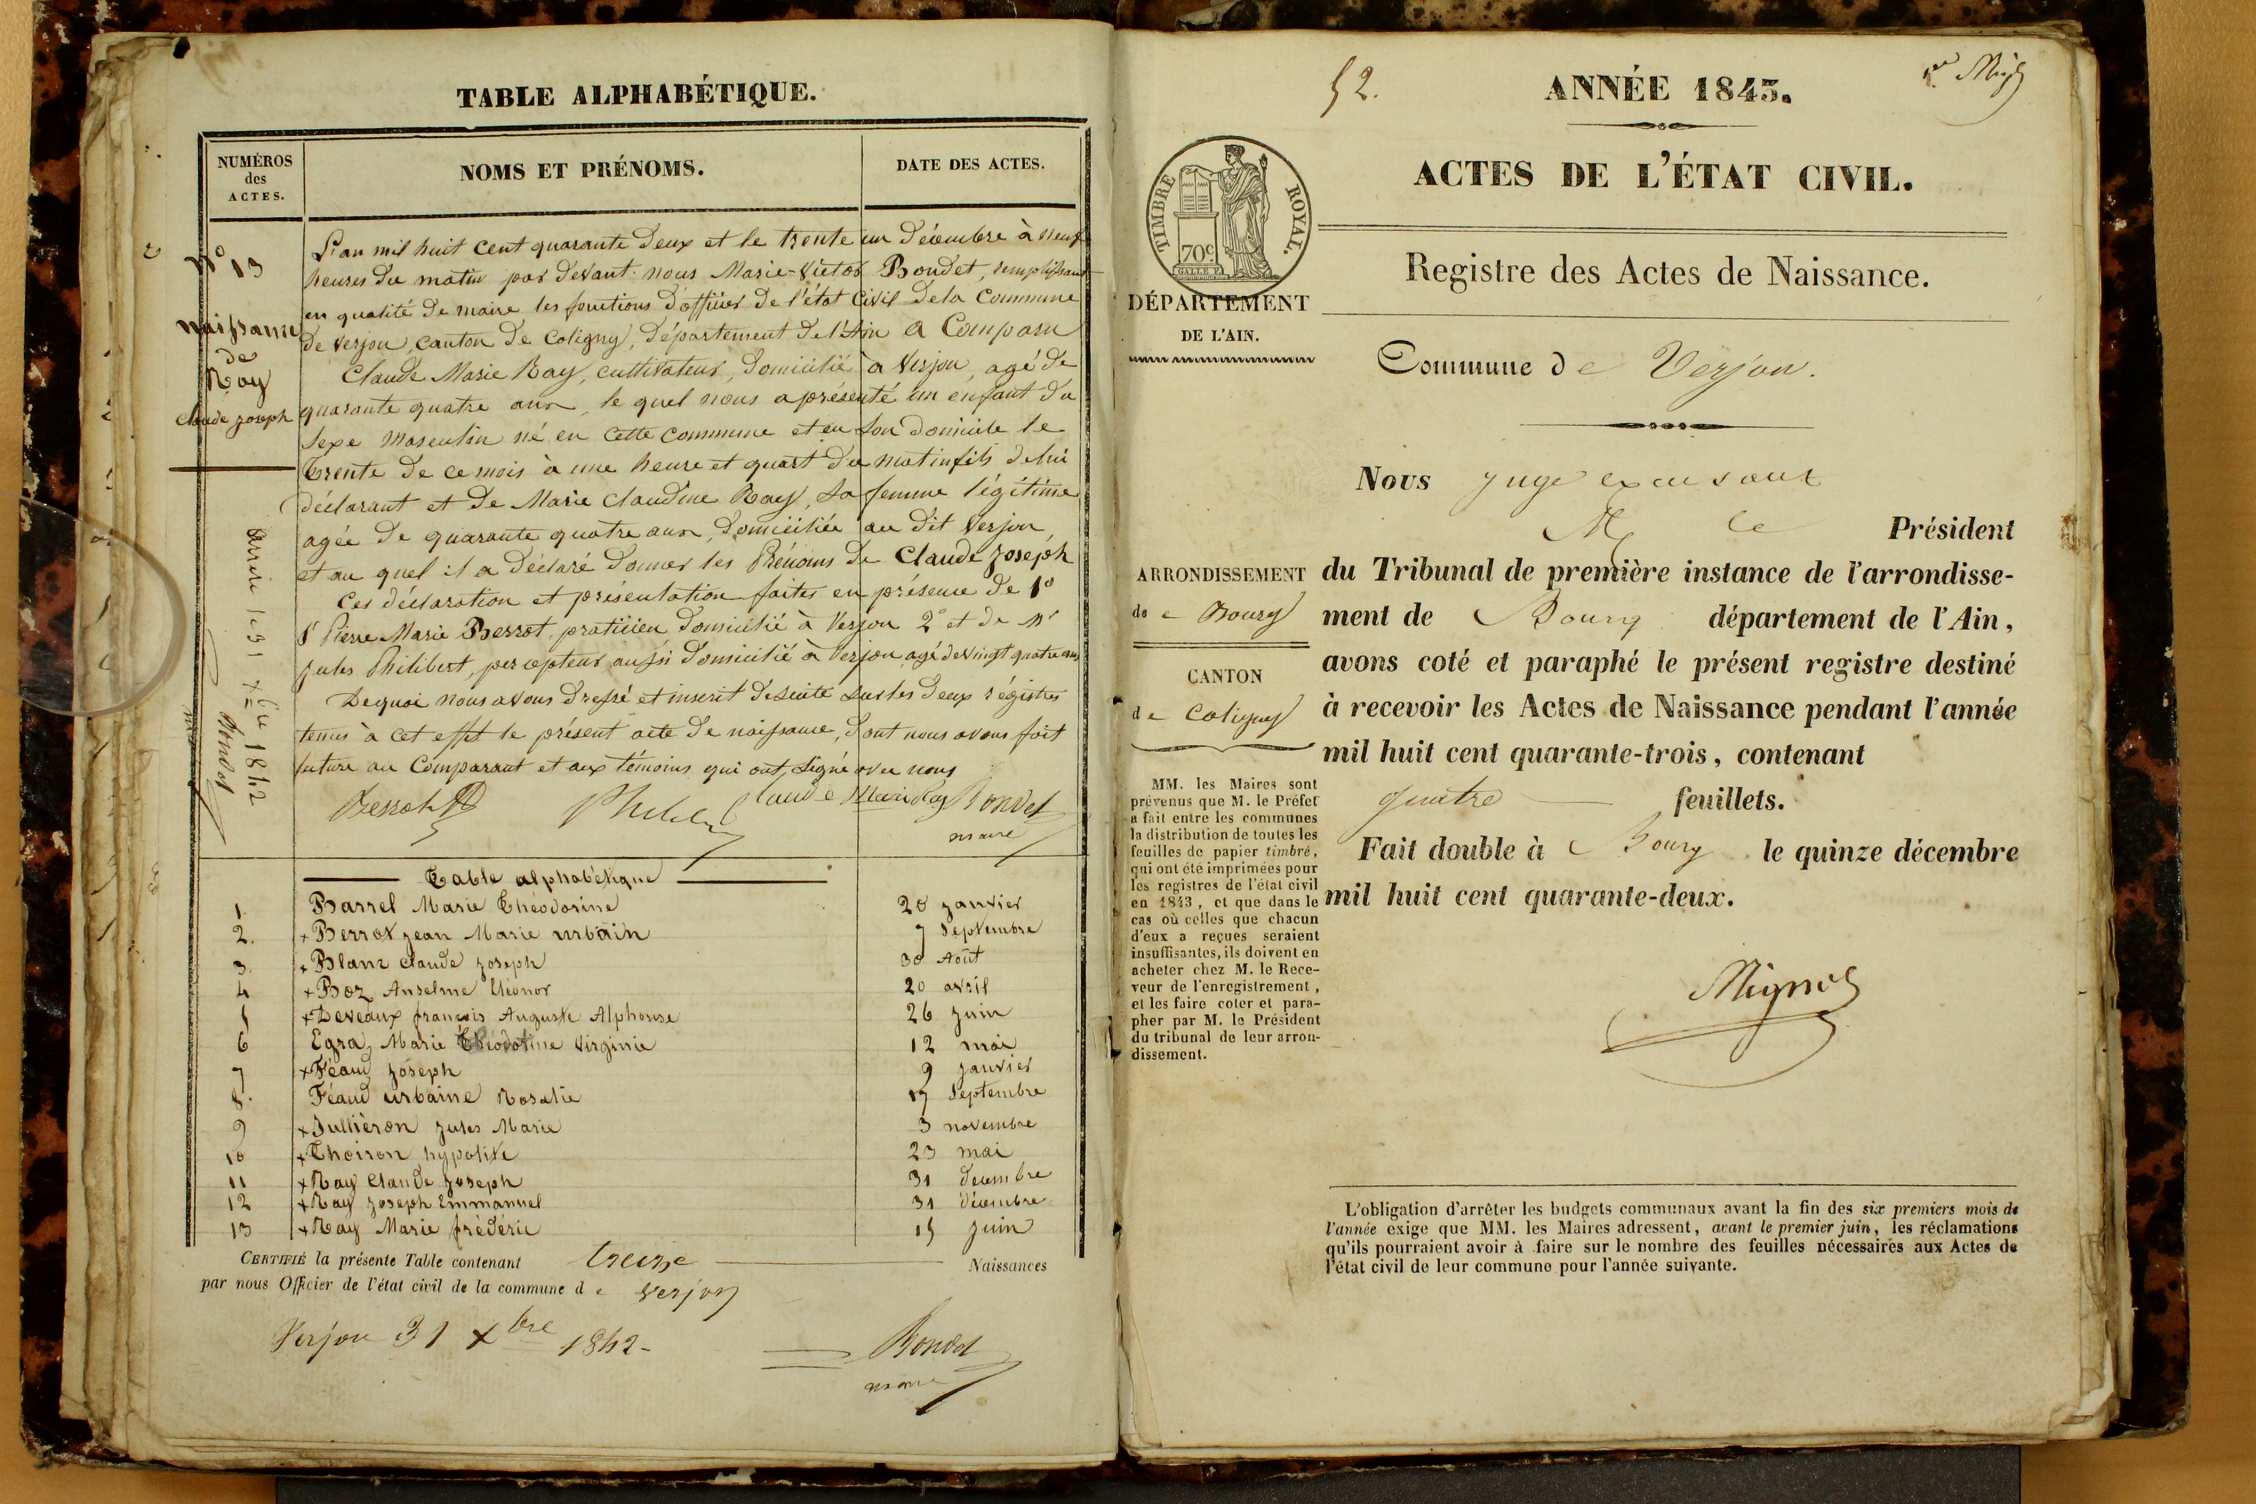 TABLE ALPHABÉTIQUE.
NUMÉROS
des
ACTES.
NOMS ET PRÉNOMS.
DATE DES ACTES.
N° 13
naissance
de
Ray
claude joseph
arrêté le 31 xbre 1842
Bondet
L'an mil huit cent quarante deux et le trente un Décembre à neuf
heures du matin par devant nous Marie-Victor Bondet, remplissant
en qualité de maire les fonctions d'officier de l'état Civil de la Commune
de Verjon, Canton de Coligny, Département de l'Ain a Comparu
Claude Marie Ray, cultivateur, domicilié à Verjon, agé de
quarante quatre ans, le quel nous a présenté un enfant du
sexe masculin né en cette commune et en son domicile le
trente de ce mois à une heure et quart du matin fils de lui
déclarant et de Marie Claudine Ray, sa femme légitime
agée de quarante quatre ans, domiciliée au dit Verjon
et au quel il a déclaré donner les Prénoms de Claude Joseph
Ces déclaration et présentation faites en présence de 1°
Sr Pierre Marie Berrot, praticien domicilié à Verjon 2° et de Mr
Jules Philibert, percepteur aussi domicilié à Verjon agé de vingt quatre ans
De quoi nous avons dressé et inscrit de suite sur les deux régistres
tenus à cet effet le présent acte de naissance, dont nous avons fait
lecture au Comparant et aux témoins qui ont signé avec nous
Berrot
Claude Marie Ray
Bondet
maire
Table alphabétique
1 Barrel Marie Théodorine 28 janvier
2. +Berrot jean Marie urbain 7 Septembre
3. +Blanc claude joseph 30 Août
4 +Boz Anselme Eléonor 20 avril
5 +Deveaux françois Auguste Alphonse 26 juin
6 Egraz Marie Théodorine Virginie 12 mai
7 +Féaud joseph 9 janvier
8. Féaud urbaine Rosalie 17 Septembre
9 +Jullièron jules Marie 3 novembre
10 +Thoiron hypolite 23 mai
11 +Ray Claude joseph 31 décembre
12 +Ray joseph Emmanuel 31 décembre
13 +Ray Marie frédéric 15 juin
CERTIFIÉ la présente Table contenant treize Naissances
par nous Officier de l'état civil de la commune de Verjon
Verjon 31 xbre 1842-
Bondet
maire
52.
ANNÉE 1843.
TIMBRE ROYAL.
70c
ACTES DE L'ÉTAT CIVIL.
Registre des Actes de Naissance.
DÉPARTEMENT
DE L'AIN.
Commune de Verjon.
Nous juge excusant
M le Président
ARRONDISSEMENT
de Bourg
CANTON
de Coligny
du Tribunal de première instance de l'arrondisse-
ment de Bourg département de l'Ain,
avons coté et paraphé le présent registre destiné
à recevoir les Actes de Naissance pendant l'année
mil huit cent quarante-trois, contenant
quatre feuillets.
Fait double à Bourg le quinze décembre
mil huit cent quarante-deux.
MM. les Maires sont
prévenus que M. le Préfet
a fait entre les communes
la distribution de toutes les
feuilles de papier timbré,
qui ont été imprimées pour
les registres de l'état civil
en 1843, et que dans le
cas où celles que chacun
d'eux a reçues seraient
insuffisantes, ils doivent en
acheter chez M. le Rece-
veur de l'enregistrement,
et les faire coter et para-
pher par M. le Président
du tribunal de leur arron-
dissement.
L'obligation d'arrêter les budgets communaux avant la fin des six premiers mois de
l'année exige que MM. les Maires adressent, avant le premier juin, les réclamations
qu'ils pourraient avoir à faire sur le nombre des feuilles nécessaires aux Actes de
l'état civil de leur commune pour l'année suivante.